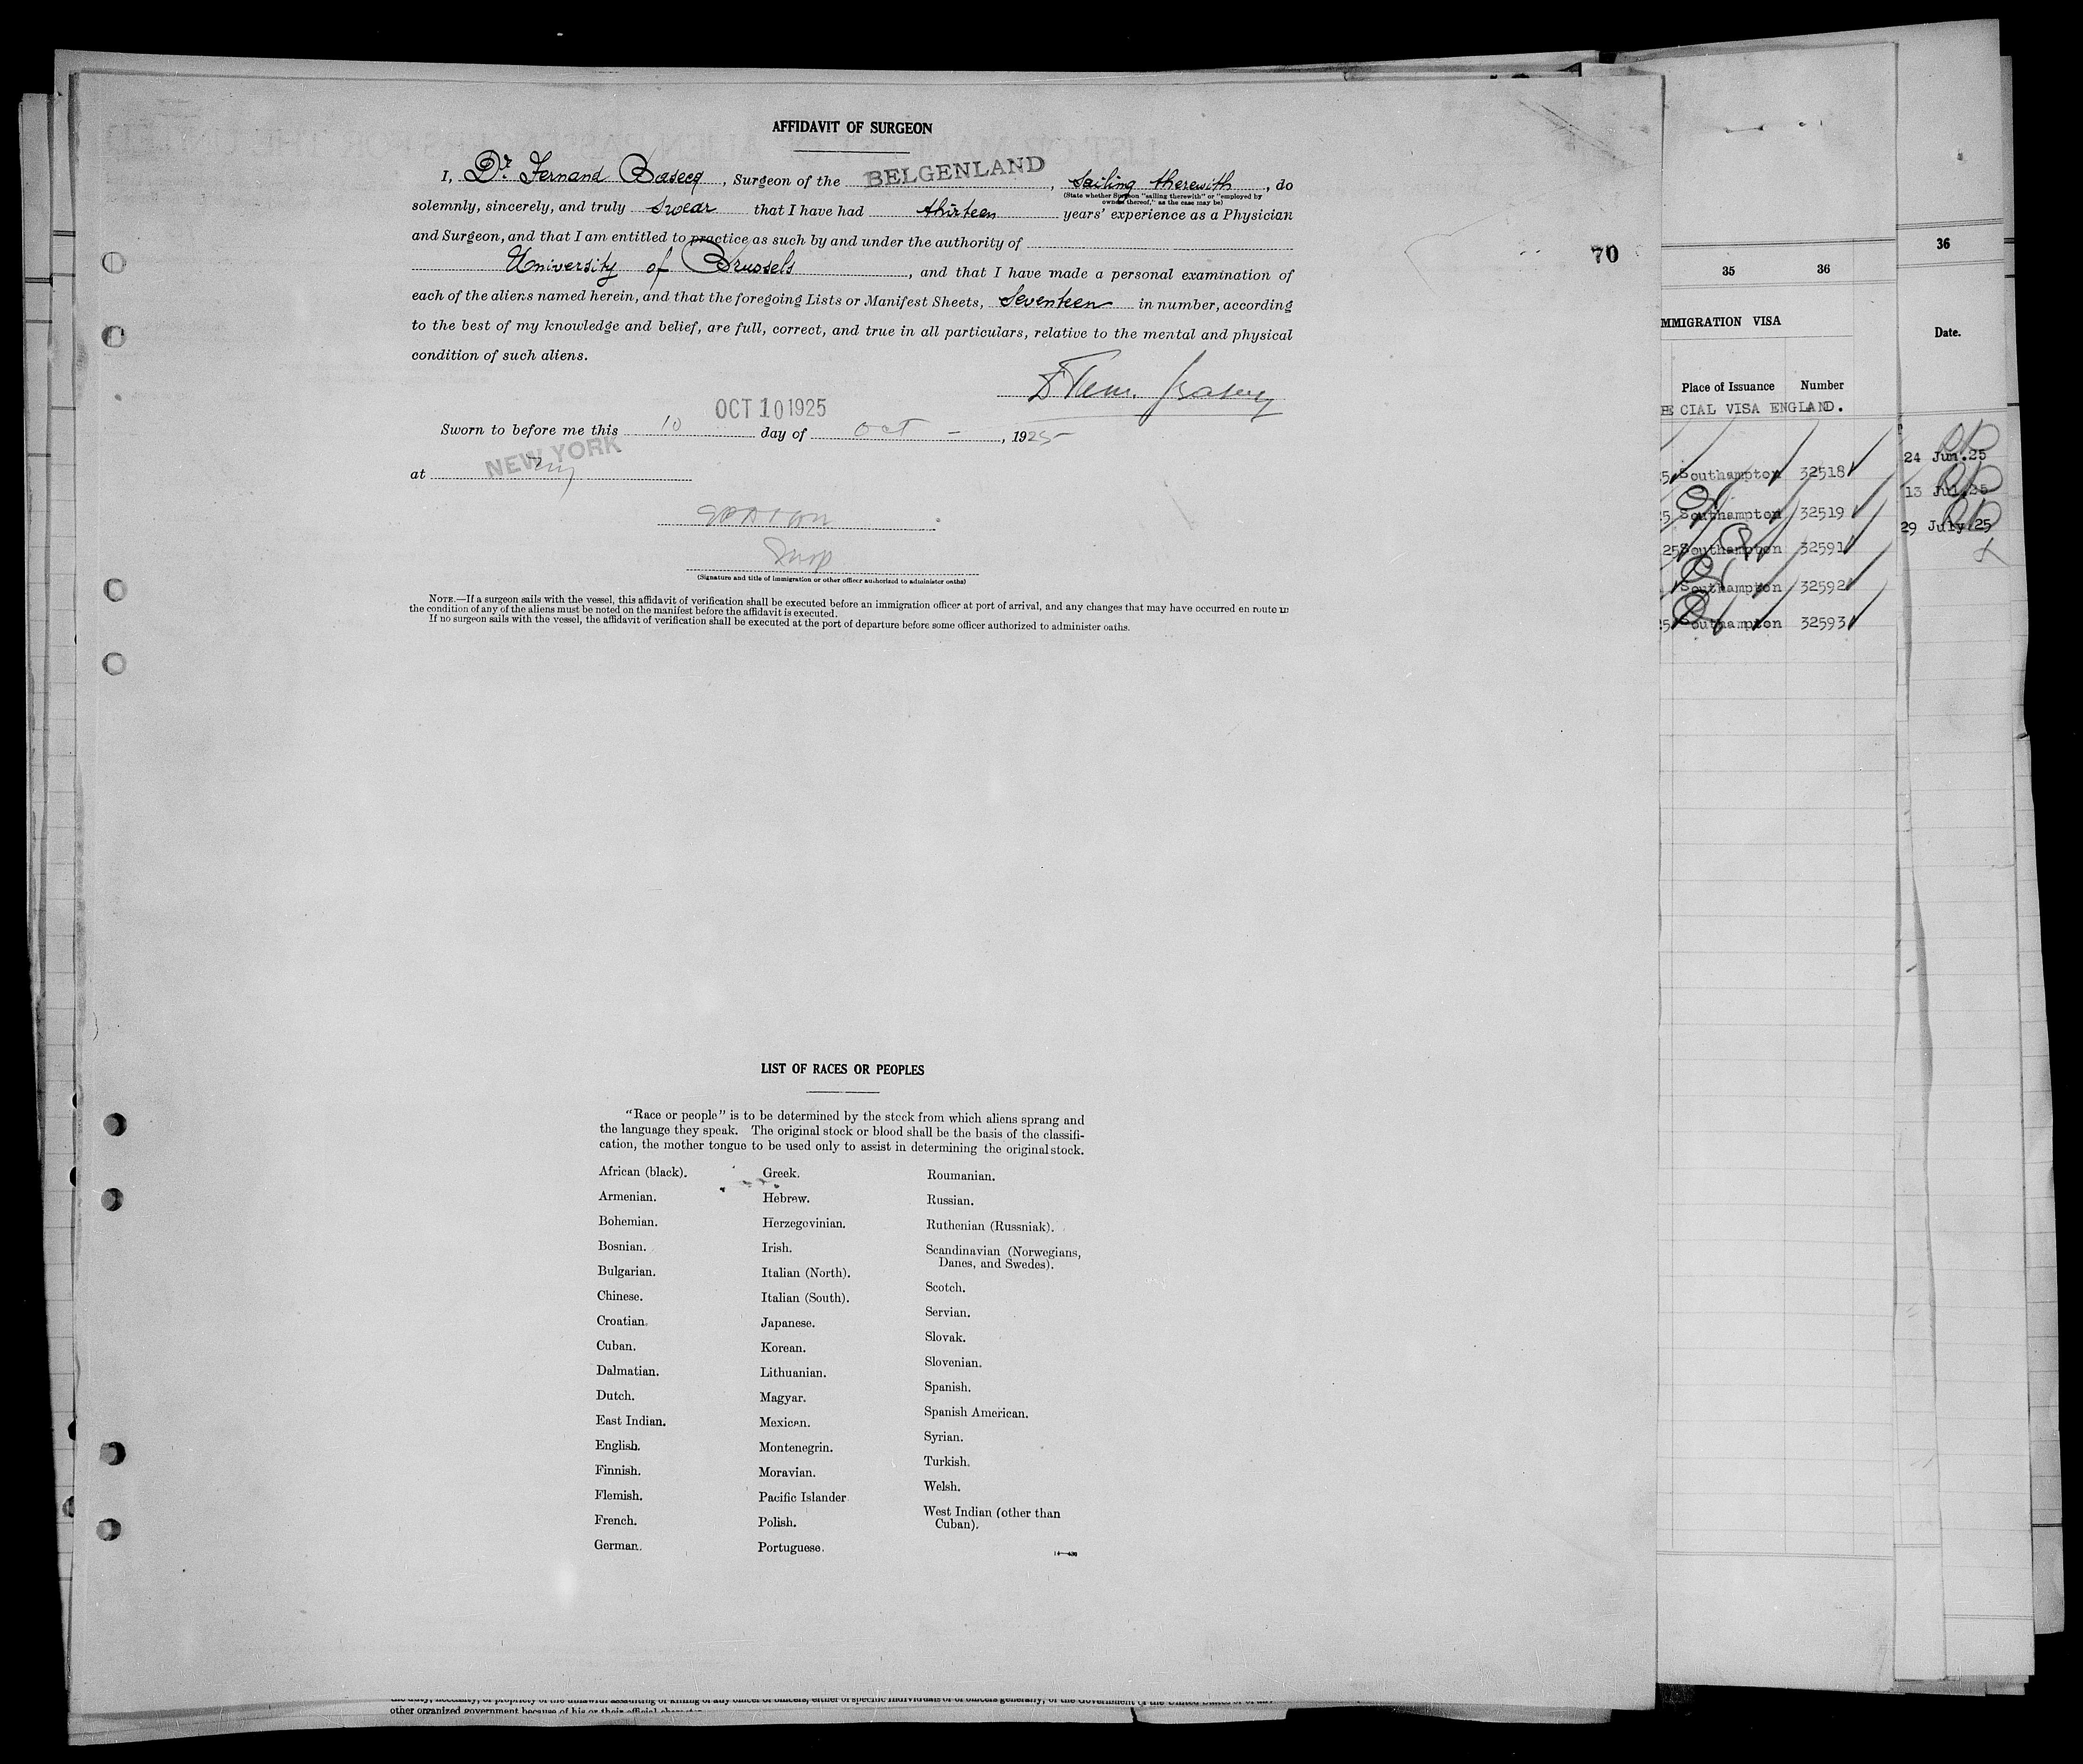 AFFIDAVIT OF SURGEON
I, Dr. Fernand Basecq, Surgeon of the BELGENLAND, sailing therewith, do
(State whether Surgeon "sailing therewith" or "employed by
owners thereof," as the case may be)
solemnly, sincerely, and truly swear that I have had thirteen years' experience as a Physician
and Surgeon, and that I am entitled to practice as such by and under the authority of
University of Brussels, and that I have made a personal examination of
each of the aliens named herein, and that the foregoing Lists or Manifest Sheets, Seventeen in number, according
to the best of my knowledge and belief, are full, correct, and true in all particulars, relative to the mental and physical
condition of such aliens.
OCT 10 1925
Sworn to before me this 10 day of Oct - , 1925
NEW YORK
at NY
Insp
(Signature and title of immigration or other officer authorized to administer oaths)
NOTE.—If a surgeon sails with the vessel, this affidavit of verification shall be executed before an immigration officer at port of arrival, and any changes that may have occurred en route in
the condition of any of the aliens must be noted on the manifest before the affidavit is executed.
If no surgeon sails with the vessel, the affidavit of verification shall be executed at the port of departure before some officer authorized to administer oaths.
70
LIST OF RACES OR PEOPLES
"Race or people" is to be determined by the stock from which aliens sprang and
the language they speak. The original stock or blood shall be the basis of the classifi-
cation, the mother tongue to be used only to assist in determining the original stock.
African (black).
Armenian.
Bohemian.
Bosnian.
Bulgarian.
Chinese.
Croatian.
Cuban.
Dalmatian.
Dutch.
East Indian.
English.
Finnish.
Flemish.
French.
German.
Greek.
Hebrew.
Herzegovinian.
Irish.
Italian (North).
Italian (South).
Japanese.
Korean.
Lithuanian.
Magyar.
Mexican.
Montenegrin.
Moravian.
Pacific Islander
Polish.
Portuguese.
Roumanian.
Russian.
Ruthenian (Russniak).
Scandinavian (Norwegians,
Danes, and Swedes).
Scotch.
Servian.
Slovak.
Slovenian.
Spanish.
Spanish American.
Syrian.
Turkish.
Welsh.
West Indian (other than
Cuban).
35 36
MMIGRATION VISA
Place of Issuance Number
CIAL VISA ENGLAND.
5 Southampton 32518
5 Southampton 32519
25 Southampton 32591
Southampton 32592
5 Southampton 32593
36
Date.
24 Jun.25
13 Jul.25
29 July.25
the duty, necessity, or propriety of the unlawful assaulting or killing of any officer or officers, either of specific individuals or of officers generally, of the Government of the United States or of any
other organized government because of his or their official character